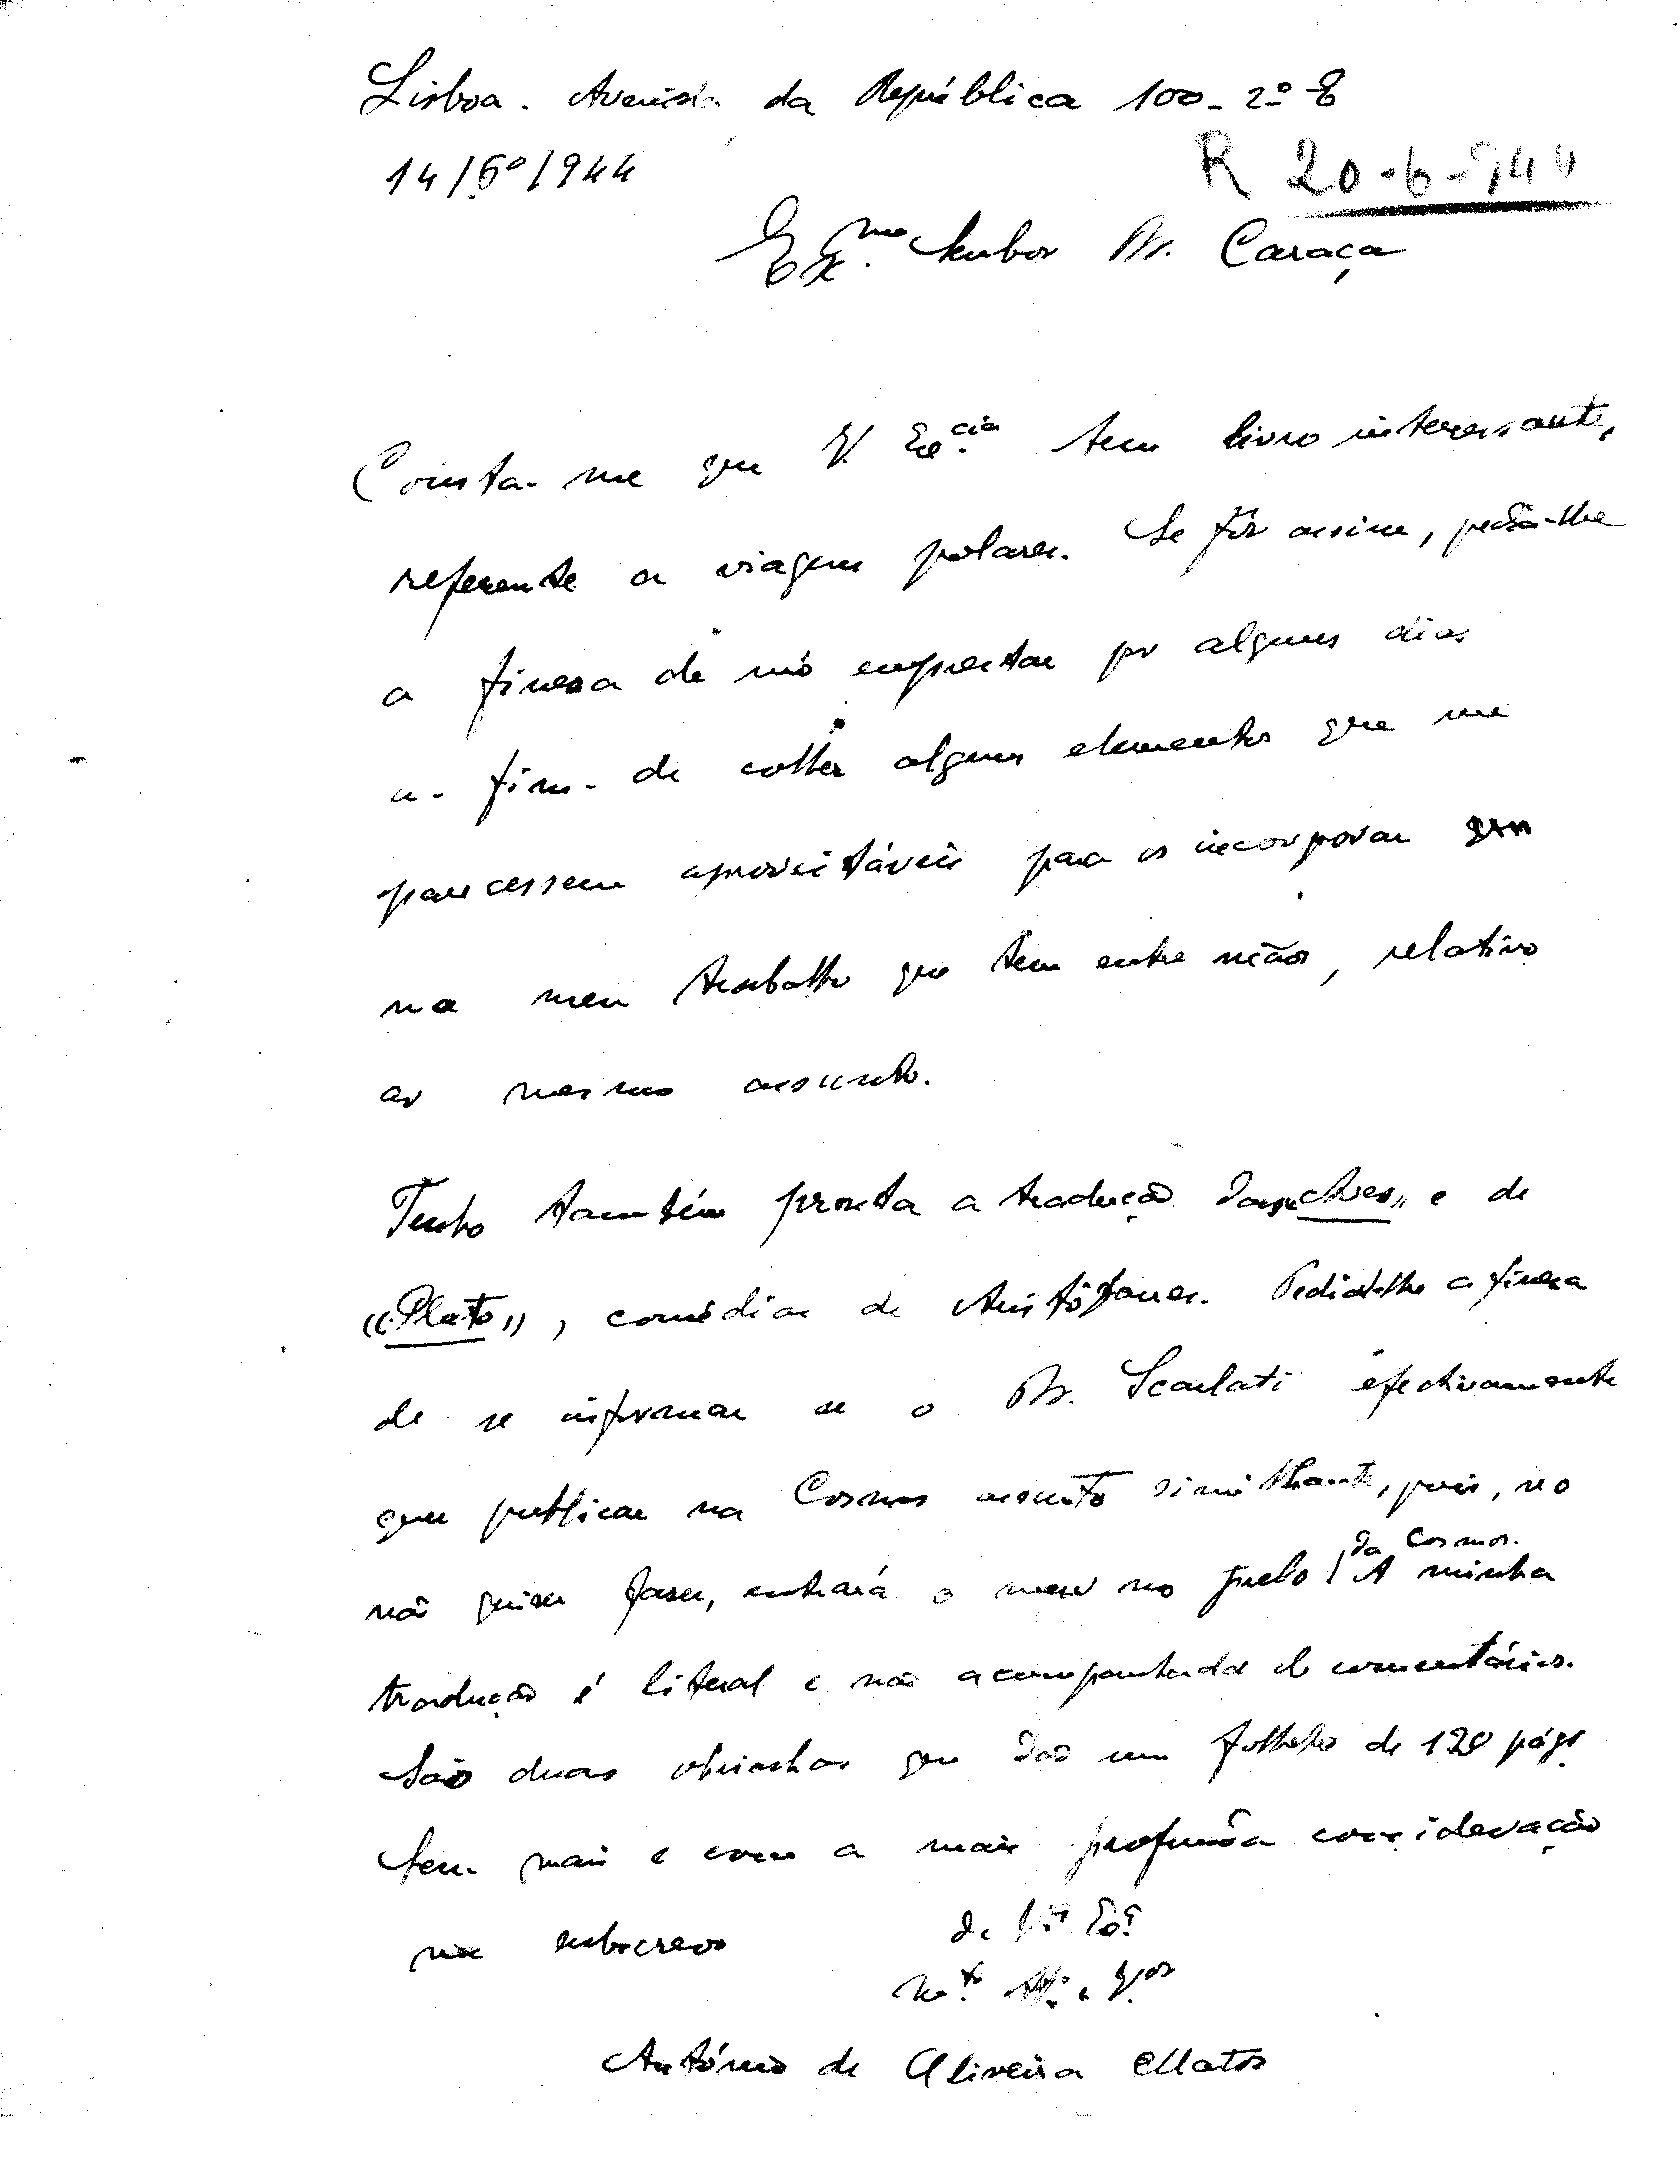 Lisboa. Avenida da República 100-2º E
14/6º/944
R 20-6-944
Ex.mo Senhor Dr. Caraça
Consta-me que V. Ex.cia tem livro interessante,
referente a viagens polares. Se fôr assim, pedia-lhe
a fineza de mo emprestar por alguns dias
a-fim-de colher alguns elementos que me
parecessem aproveitáveis para os incorporar
no meu trabalho que tem entre mãos, relativo
ao mesmo assunto.
Tenho também pronta a tradução das e de
«Pluto», comédias de Aristófanes. Pedia-lhe a fineza
de se informar se o Dr. Scarlati efectivamente
quer publicar na Cosmos assunto similhante, pois, se o
não quiser fazer, entrará o meu no prelo da Cosmos. A minha
tradução é literal e não acompanhada de comentários.
São duas obrinhas que dão um folheto de 128 págs.
Sem mais e com a mais profunda consideração
me subscrevo de V. Ex.ª
M.to At.º e
António de Oliveira Matos